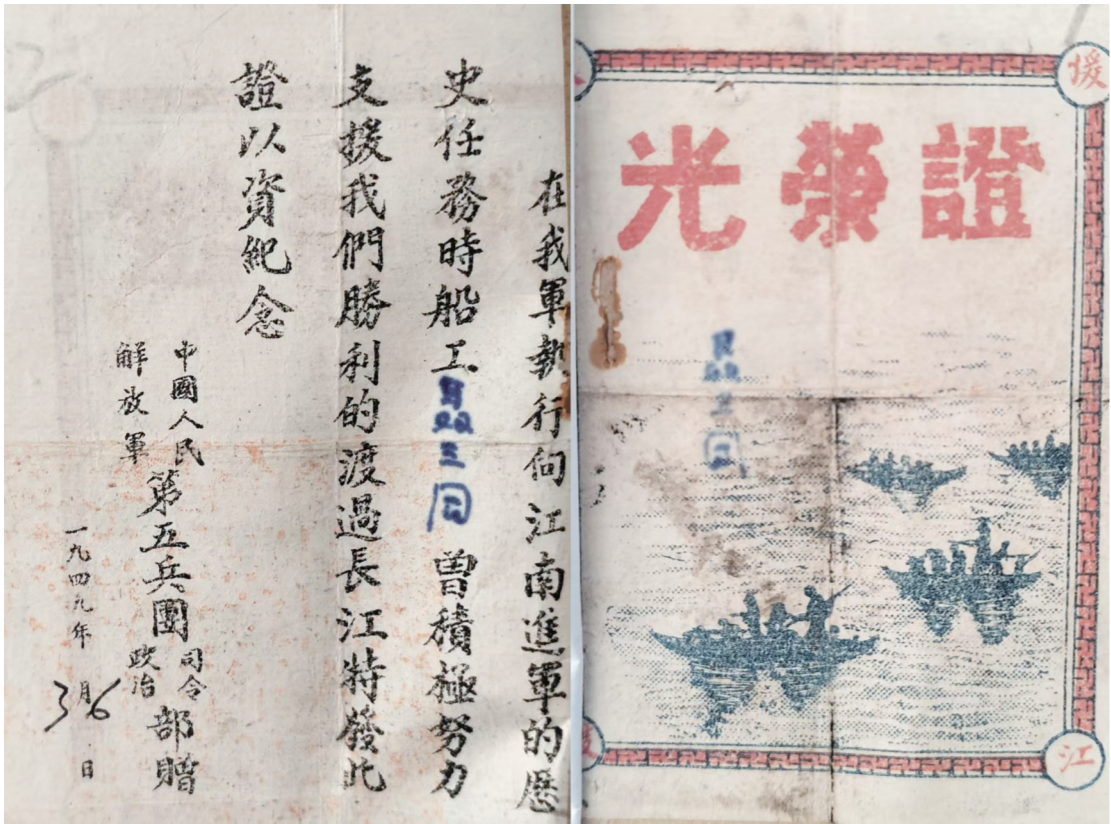 光榮證
聂三回
援
江
在我軍執行向江南進軍的歷
史任務時船工聂三回曾積極努力
支援我們勝利的渡過長江特發此
證以資紀念
中國人民解放軍第五兵團司令政治部贈
一九四九年3月6日